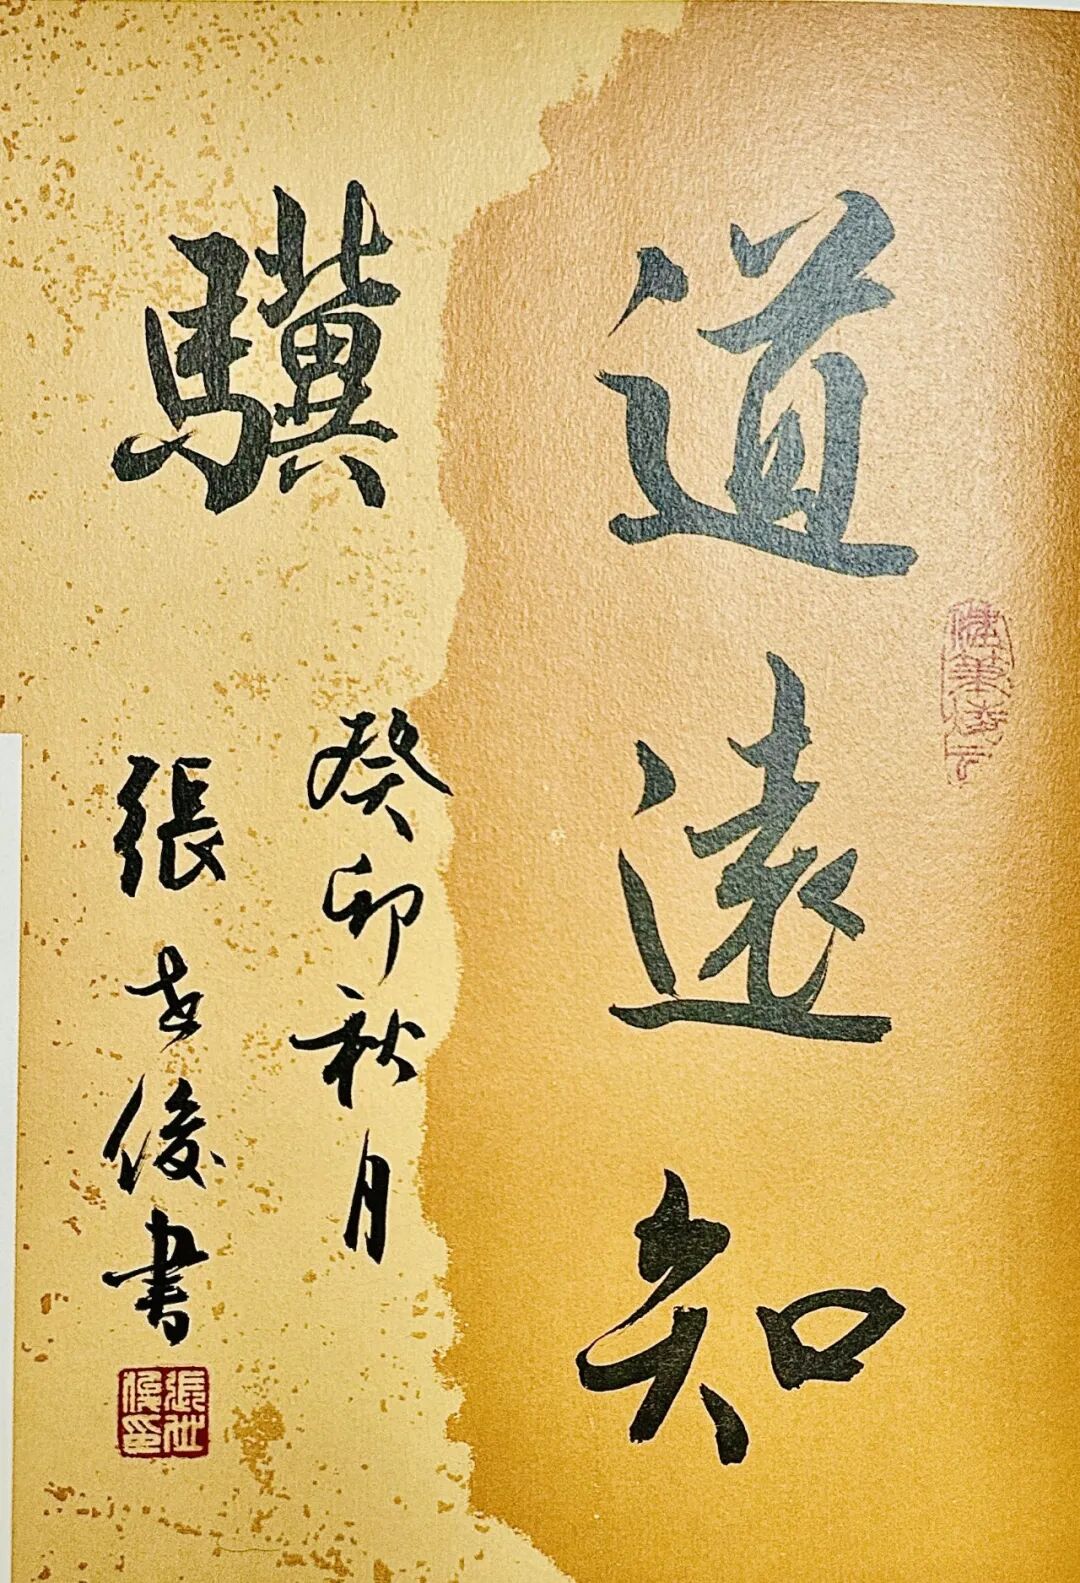 道遠知
驥
癸卯秋月
張世俊書
張世俊印